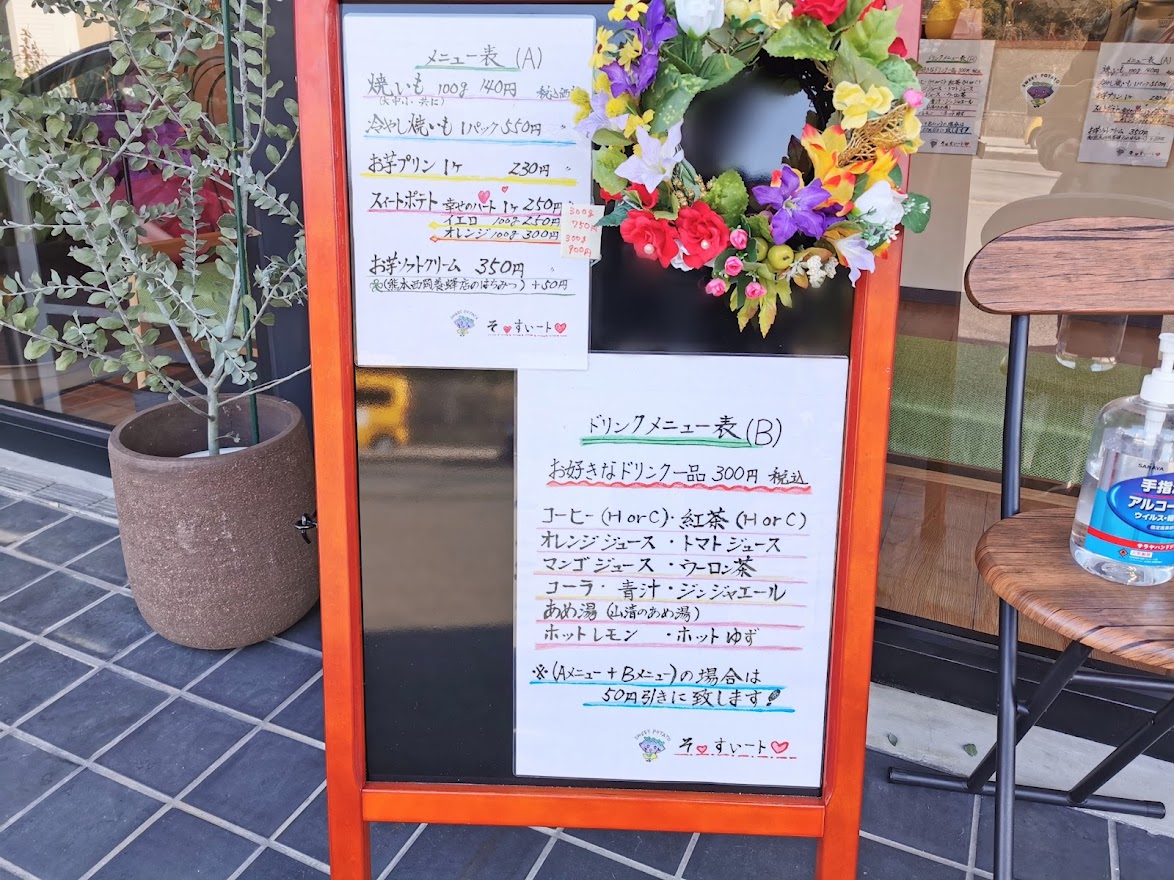 メニュー表 (A)
焼いも 100g 140円 税込価
(大中小共に)
冷やし焼いも 1パック 550円 〃
お芋プリン 1ヶ 230円 〃
スイートポテト 幸せのハート 1ヶ 250円 〃
イエロ 100g 250円
オレンジ 100g 300円
300g
750円
300g
900円
お芋ソフトクリーム 350円 〃
(熊本西岡養蜂店のはちみつ) +50円 〃
SWEET POTATO
そ♥すぃート♥
ドリンクメニュー表 (B)
お好きなドリンク一品 300円 税込
コーヒー (H or C)・紅茶 (H or C)
オレンジジュース ・トマトジュース
マンゴジュース ・ウーロン茶
コーラ・ 青汁・ジンジャエール
あめ湯 (山清のあめ湯)
ホットレモン ・ホットゆず
※(Aメニュー+Bメニュー)の場合は
50円引きに致します!
SWEET POTATO
そ♥すぃート♥
SARAYA
手指
アルコー
ウイルス・